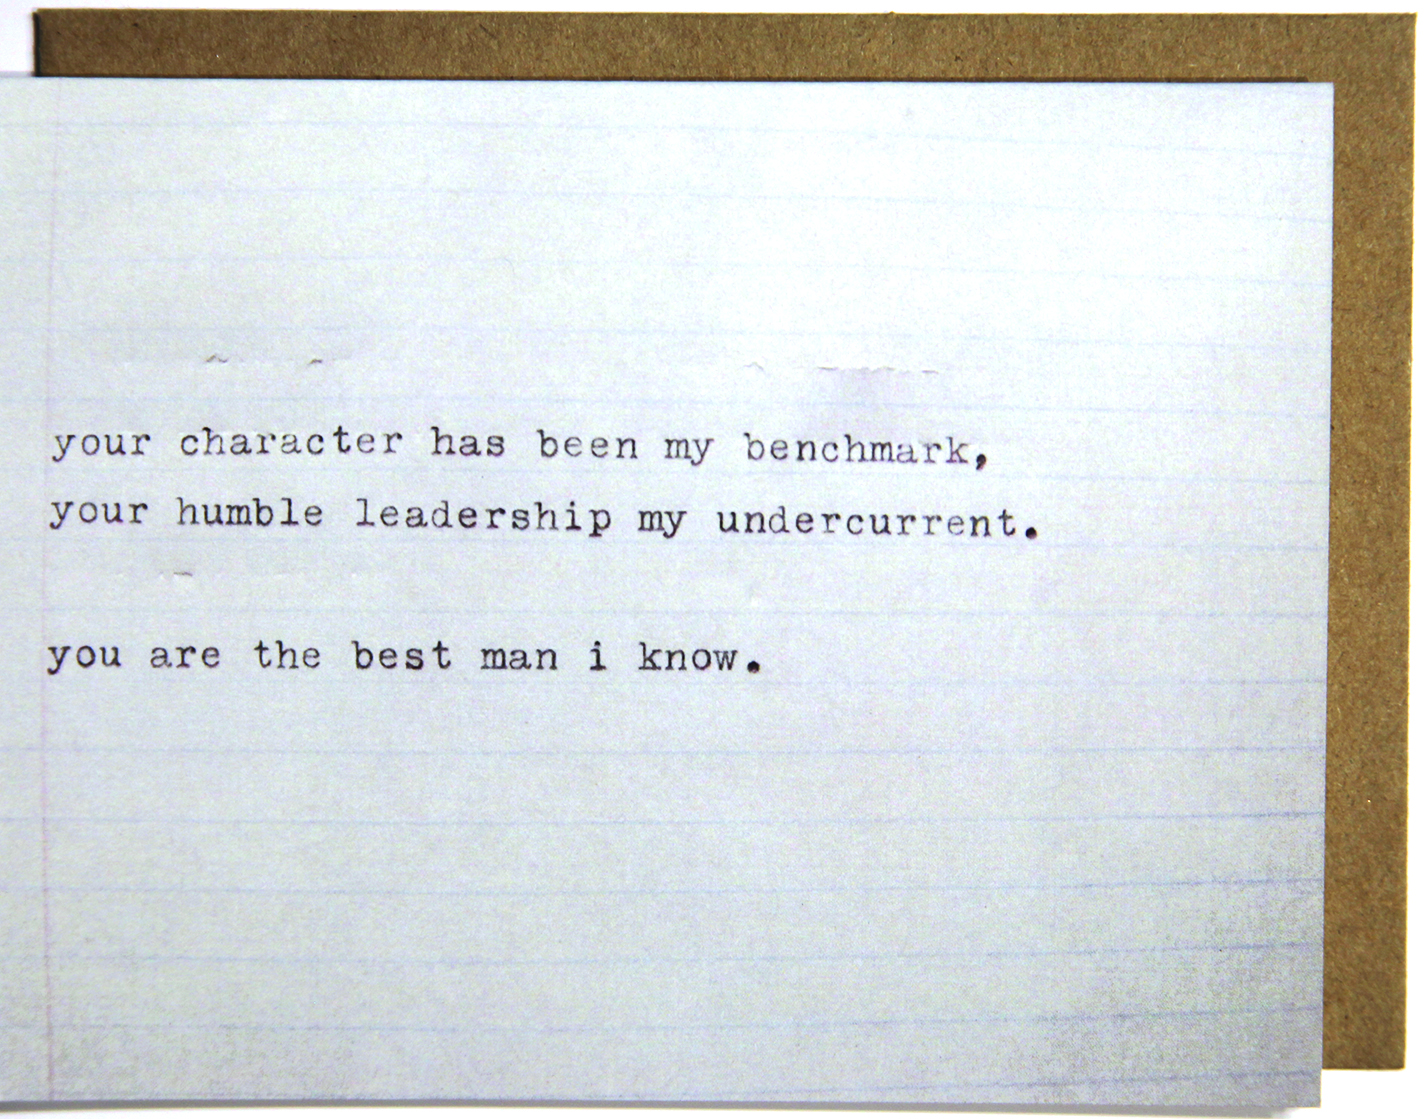 your character has been my benchmark,
your humble leadership my undercurrent.
you are the best man i know.